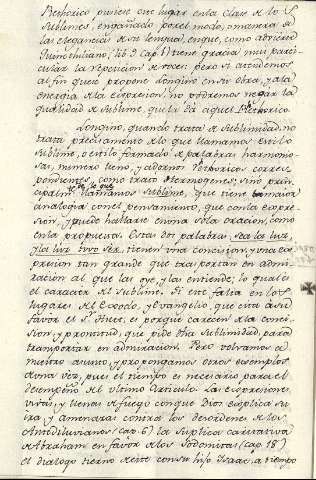 Rethorico quiere dar lugar en la clase de los
Sublimes, engañado por el modo, o manera de
las elegancias de su lengua, en que, como advierte
Quintiliano, (lib. 9. cap. 3) tiene gracia mui parti-
cular la repeticion de voces: pero si atendemos
al fin que se propone Longino en su obra, y a la
energia de la expresion, no podremos negar la
qualidad de Sublime, que la da aquel Rethorico.
Longino, quando trata de Sublimidad, no
trata precisamente de lo que llamamos estilo
Sublime, o estilo formado de palabras harmonio-
sas, numero lleno, y adornos Rethoricos corres-
pondientes, como trato Hermogenes; sino prin-
cipalmte de lo que llamamos Sublime, que tiene maior
analogia con el pensamiento, que con la expre-
sion, y puede hallarse en una sola oracion, como
en la propuesta. Estas dos palabras, sea la luz,
y la luz tuvo ser, tienen una concision, y una ex-
presion tan grande que transportan en admi-
racion al que las oye, y las entiende; lo qual es
el caracter del Sublimo. Si este falta en los
lugares del Exodo, y Evangelio, que cita a su
favor el Sr. Huet, es porque carecen de la conci-
sion, y prontitud, que pide dha Sublimidad, para
transportar en admiracion. Pero volvamos a
nuestro asunto, y propongamos otros exemplos
de una vez, pues el tiempo es necesario para el
desempeño del ultimo Articulo. Las expresiones
vivas, y llenas de fuego con que Dios explica su
ira, y amenazas contra los desordenes de los
Antidiluvianos (cap. 6) la suplica caritativa
de Abraham en favor de los Sodomitas (cap. 18)
el dialogo tierno de este con su hijo Isaac, a tiempo